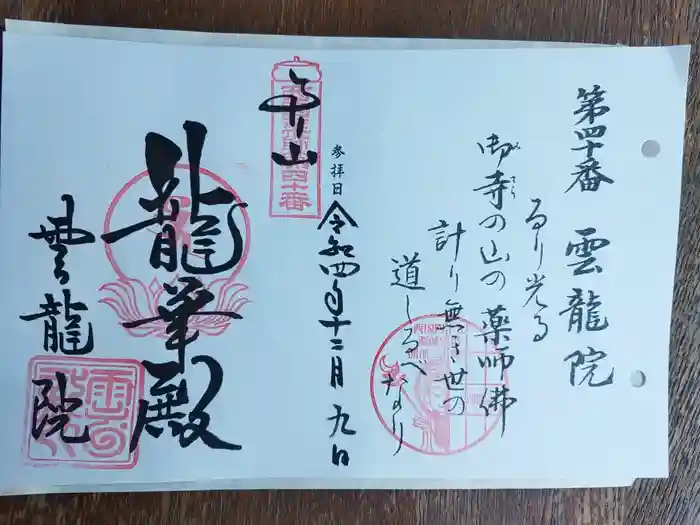 第四十番 雲龍院
るり光る
御寺の山の 薬師佛
みてら
計り無き世の
道しるべなり
参拝日
令和四年十二月九日
龍華殿
雲龍院